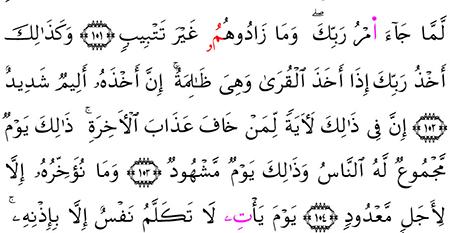 لَّمَّا جَآءَ امْرُ رَبِّكَۖ وَمَا زَادُوهُمُۥ غَيْرَ تَتْبِيبٖ ۝١٠١ وَكَذَٰلِكَ
أَخْذُ رَبِّكَ إِذَا أَخَذَ اَلْقُرَىٰ وَهِىَ ظَٰلِمَةٌۚ إِنَّ أَخْذَهُۥ أَلِيمٞ شَدِيدٌ
۝١٠٢ إِنَّ فِى ذَٰلِكَ لَأٓيَةٗ لِّمَنْ خَافَ عَذَابَ اَلْأٓخِرَةِۚ ذَٰلِكَ يَوْمٞ
مَّجْمُوعٞ لَّهُ اُلنَّاسُ وَذَٰلِكَ يَوْمٞ مَّشْهُودٞ ۝١٠٣ وَمَا نُؤَخِّرُهُۥ إِلَّا
لِأَجَلٖ مَّعْدُودٖ ۝١٠٤ يَوْمَ يَأْتِۦ لَا تَكَلَّمُ نَفْسٌ إِلَّا بِإِذْنِهِۦۚ